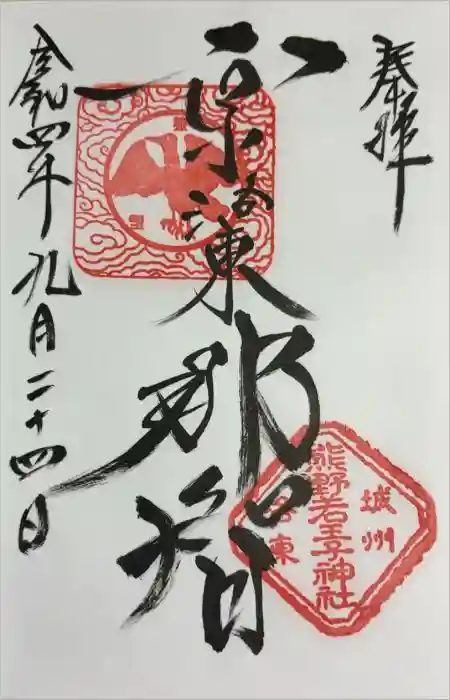 奉拝
京洛東
那智
熊野若王子神社
城州
洛東
令和四年九月二十四日